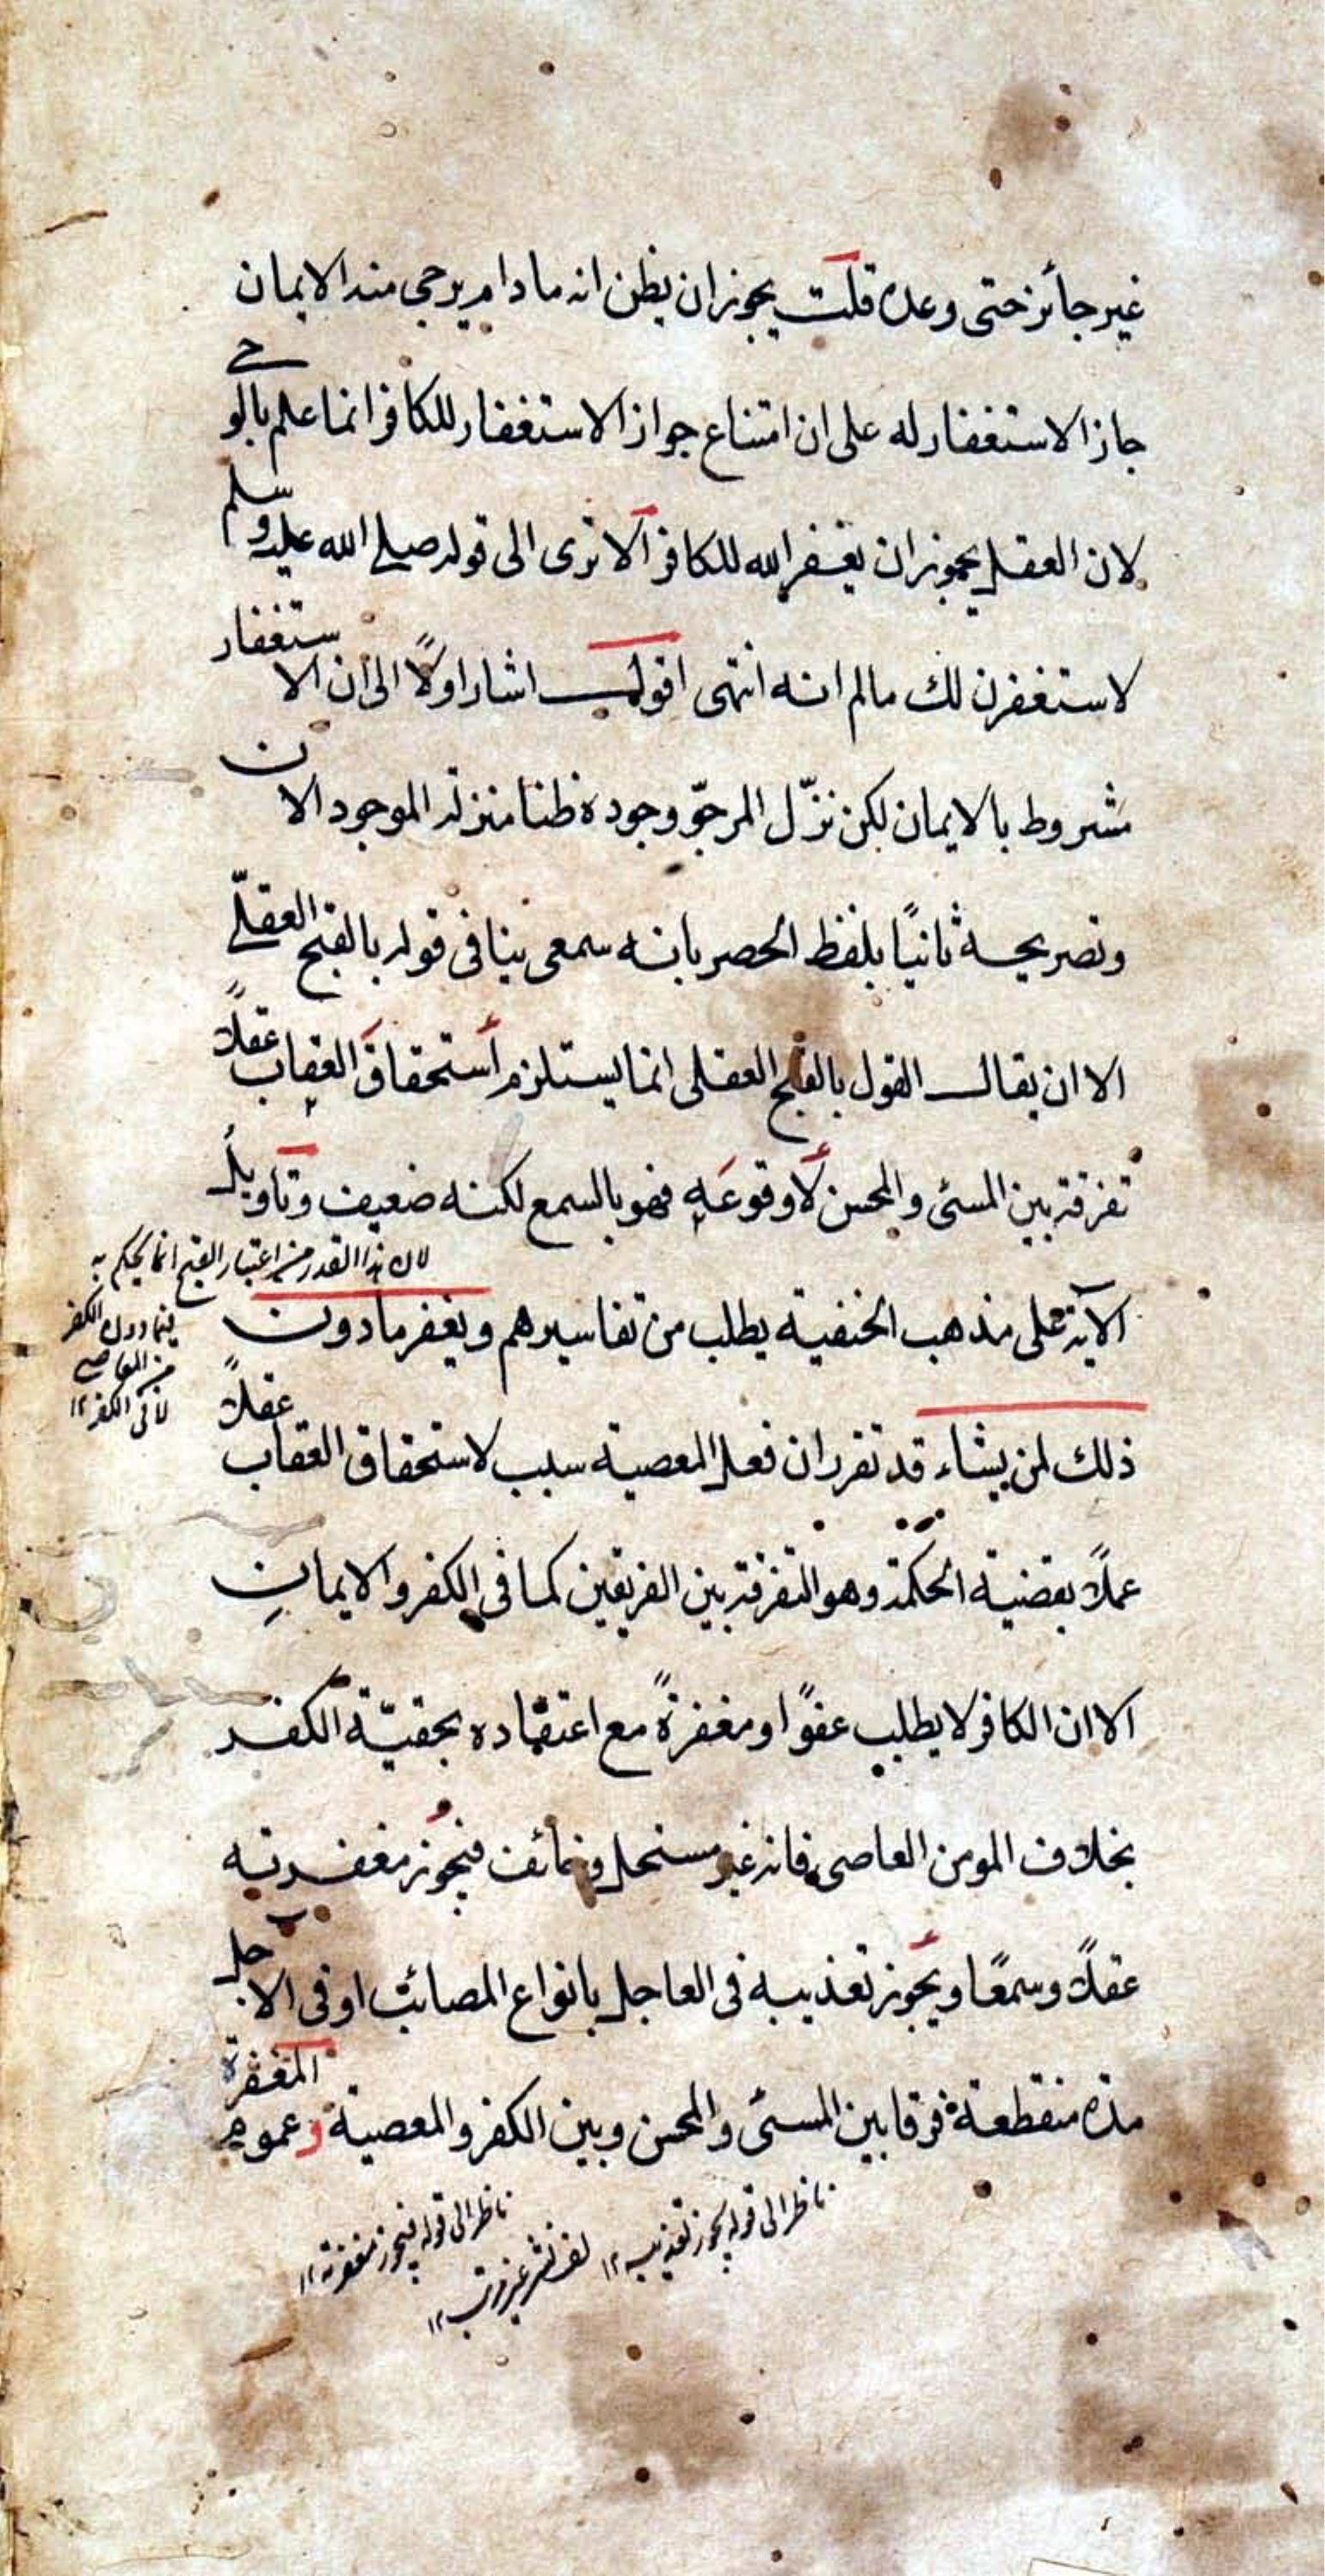 غير جائز حتى وعده قلت يجوز ان يظن انه مادام يرجى منه الايمان
جاز الاستغفار له على ان امتناع جواز الاستغفار للكافر انما علم بالوحى
لان العقل يجوز ان يغفر الله للكافر الا ترى الى قوله صلى الله عليه وسلم
لاستغفرن لك مالم انه انتهى اقول اشار اولًا الى ان الاستغفار
مشروط بالايمان لكن نزّل المرجوّ وجوده ظنا منزلة الموجود الان
وتصريحه ثانيًا بلفظ الحصر بانه سمعى ينافى قوله بالقبح العقلّى
الا ان يقال القول بالقبح العقلى انما يستلزم استحقاق العقاب عقلًا
تفرقة بين المسئ والمحسن لا وقوعه فهو بالسمع لكنه ضعيف وتاويل
الآية على مذهب الحنفية يطلب من تفاسيرهم ويغفر مادون
ذلك لمن يشاء قد تقرر ان فعل المعصية سبب لاستحقاق العقاب عقلًا
عملًا بقضية الحكمة وهو التفرقة بين الفريقين كما فى الكفر والايمان
الا ان الكافر لا يطلب عفوًا ومغفرةً مع اعتقاده بحقيّة الكفر
بخلاف المومن العاصى فانه غير مستحل وخائف فيجوز مغفرته
عقلًا وسمعًا ويجوز تعذيبه فى العاجل بانواع المصائب او فى الاجل
مدة منقطعة فرقا بين المسئ والمحسن وبين الكفر والمعصية وعموم المغفرة
لان هذا القدر من اعتبار القبح انما يحكم به
فيما دون الكفر
من المعاصى
لا فى الكفر ١٢
ناظر الى قوله يجوز تعذيبه ١٢
لف نشر غير مرتب ١٢
ناظر الى قوله فيجوز مغفرته ١٢